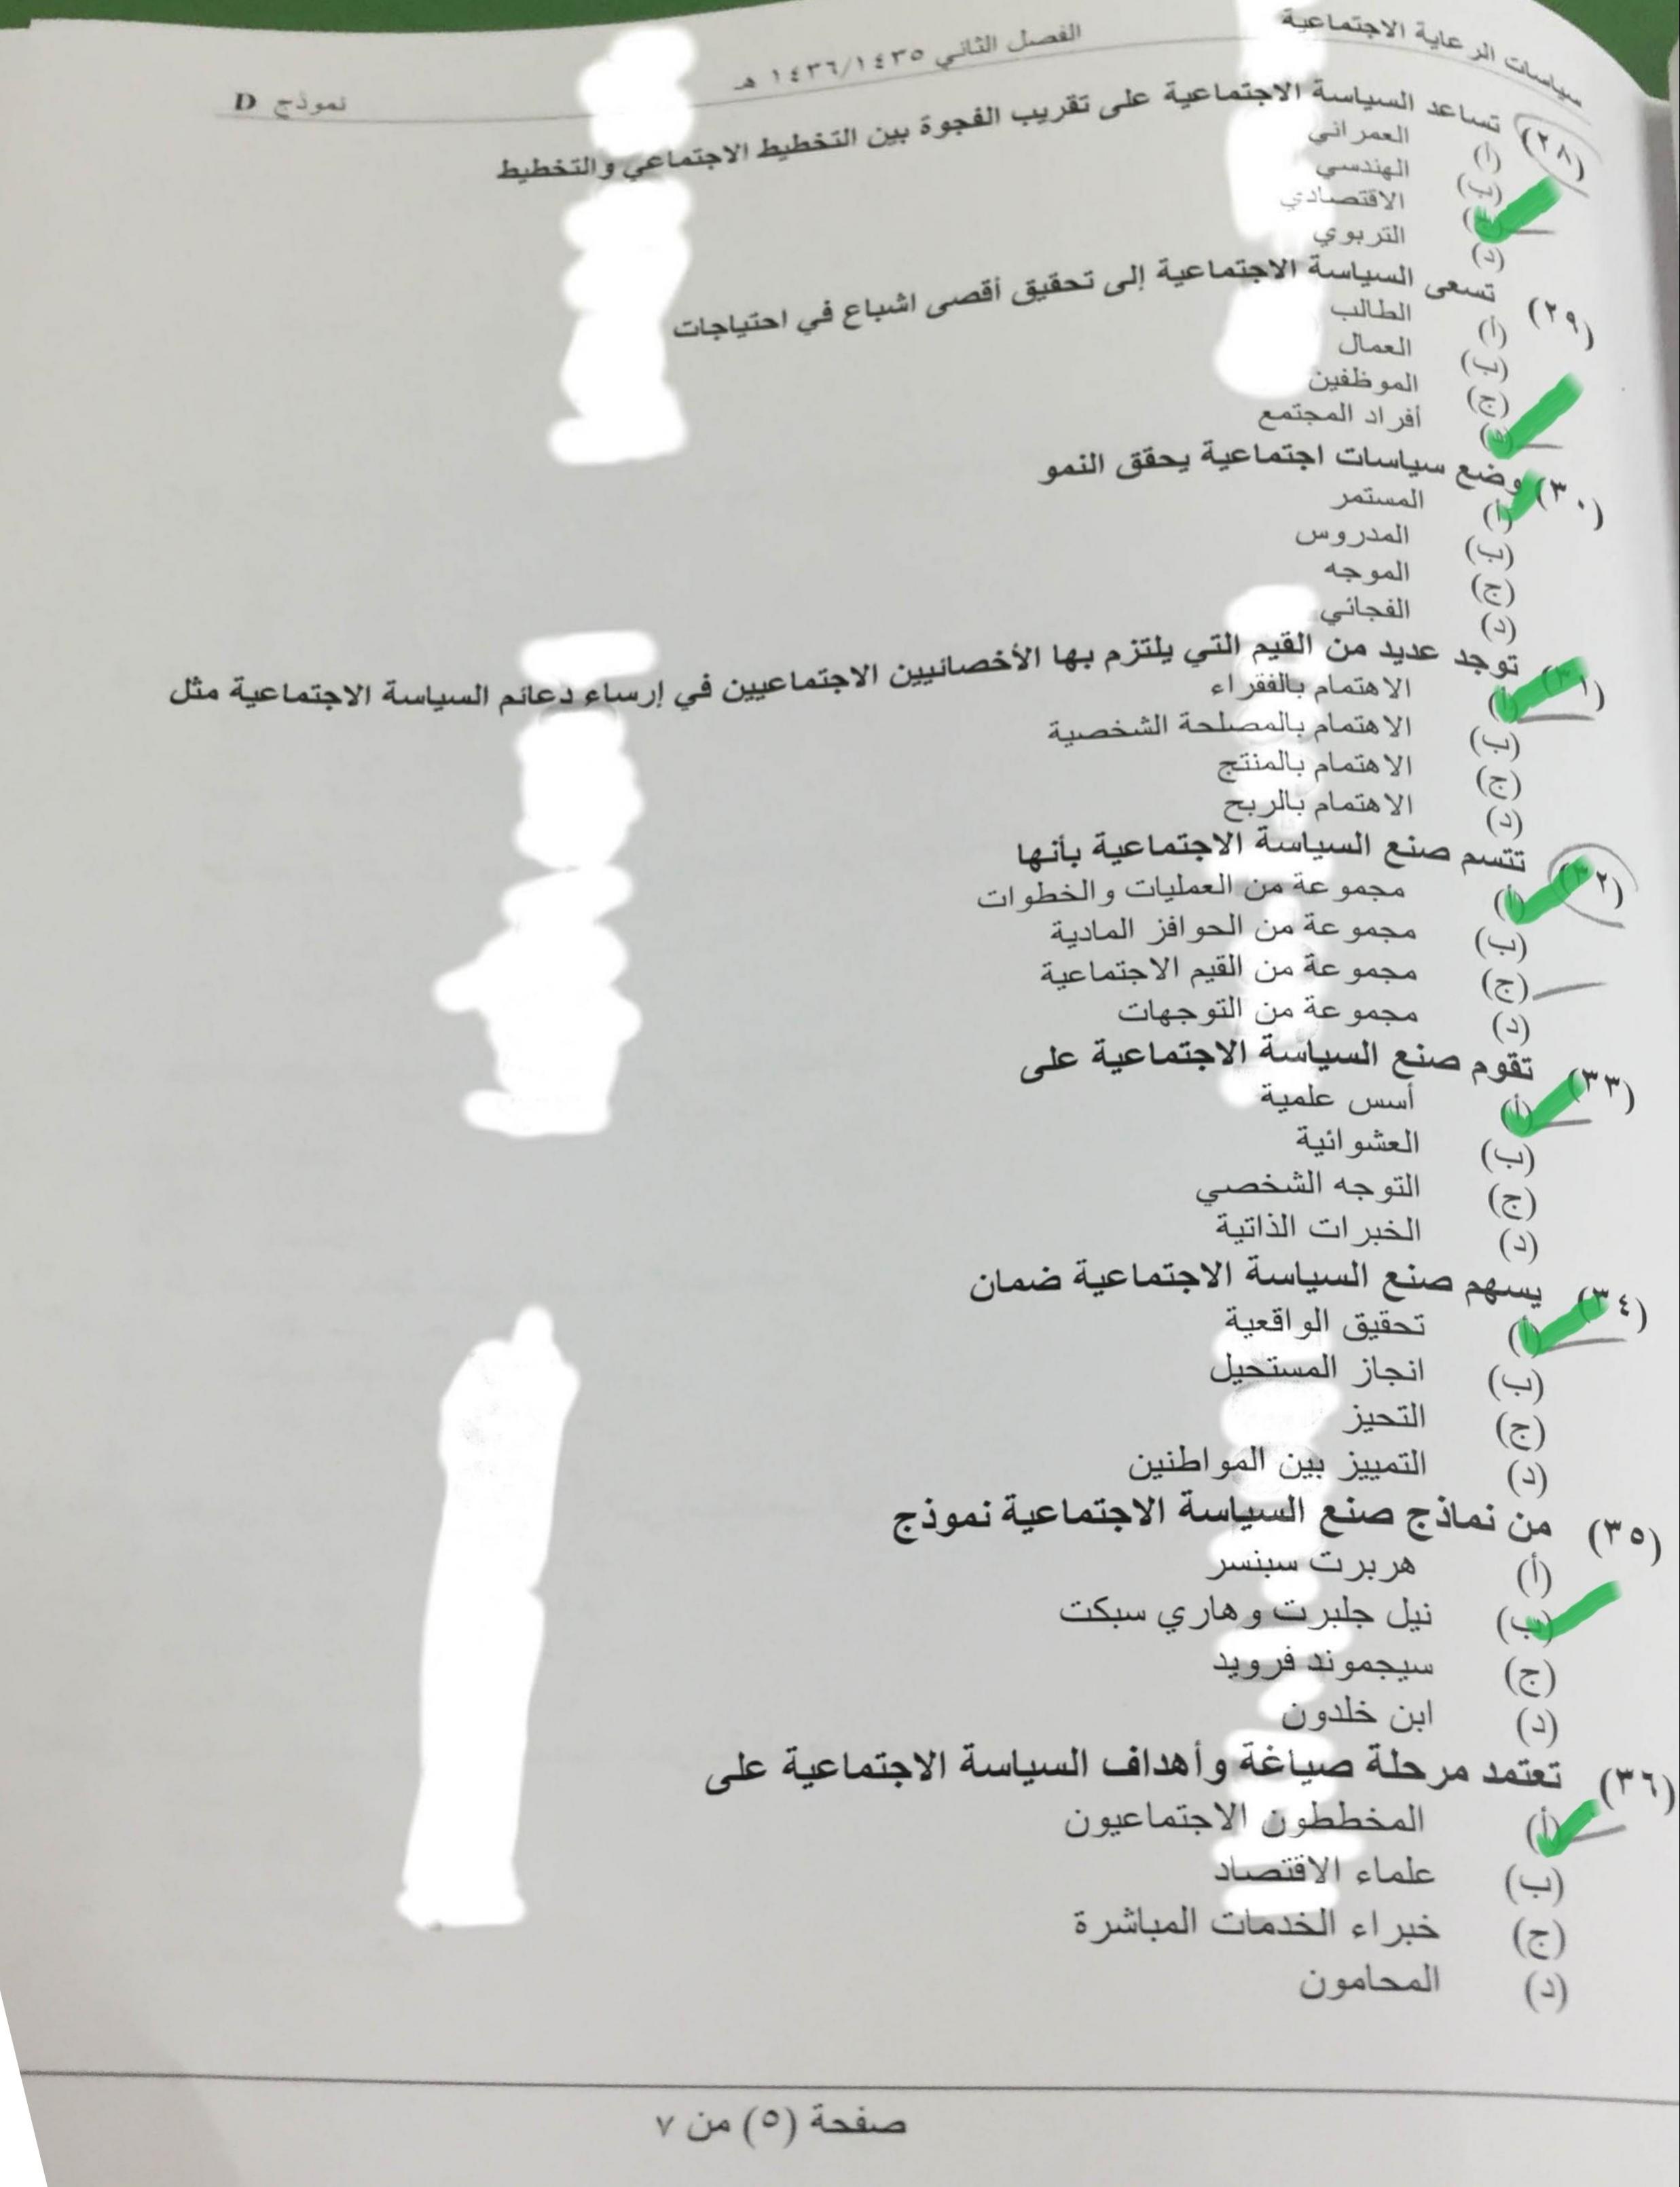 سياسات الرعاية الاجتماعية الفصل الثاني ١٤٣٦/١٤٣٥ هـ نموذج D
(٢٨) تساعد السياسة الاجتماعية على تقريب الفجوة بين التخطيط الاجتماعي والتخطيط
(أ) العمراني
(ب) الهندسي
(ج) الاقتصادي
(د) التربوي
(٢٩) تسعى السياسة الاجتماعية إلى تحقيق أقصى اشباع في احتياجات
(أ) الطالب
(ب) العمال
(ج) الموظفين
(د) أفراد المجتمع
(٣٠) وضع سياسات اجتماعية يحقق النمو
(أ) المستمر
(ب) المدروس
(ج) الموجه
(د) الفجائي
(٣١) توجد عديد من القيم التي يلتزم بها الأخصائيين الاجتماعيين في إرساء دعائم السياسة الاجتماعية مثل
(أ) الاهتمام بالفقراء
(ب) الاهتمام بالمصلحة الشخصية
(ج) الاهتمام بالمنتج
(د) الاهتمام بالربح
(٣٢) تتسم صنع السياسة الاجتماعية بأنها
(أ) مجموعة من العمليات والخطوات
(ب) مجموعة من الحوافز المادية
(ج) مجموعة من القيم الاجتماعية
(د) مجموعة من التوجهات
(٣٣) تقوم صنع السياسة الاجتماعية على
(أ) أسس علمية
(ب) العشوائية
(ج) التوجه الشخصي
(د) الخبرات الذاتية
(٣٤) يسهم صنع السياسة الاجتماعية ضمان
(أ) تحقيق الواقعية
(ب) انجاز المستحيل
(ج) التحيز
(د) التمييز بين المواطنين
(٣٥) من نماذج صنع السياسة الاجتماعية نموذج
(أ) هربرت سبنسر
(ب) نيل جلبرت وهاري سبكت
(ج) سيجموند فرويد
(د) ابن خلدون
(٣٦) تعتمد مرحلة صياغة وأهداف السياسة الاجتماعية على
(أ) المخططون الاجتماعيون
(ب) علماء الاقتصاد
(ج) خبراء الخدمات المباشرة
(د) المحامون
صفحة (٥) من ٧